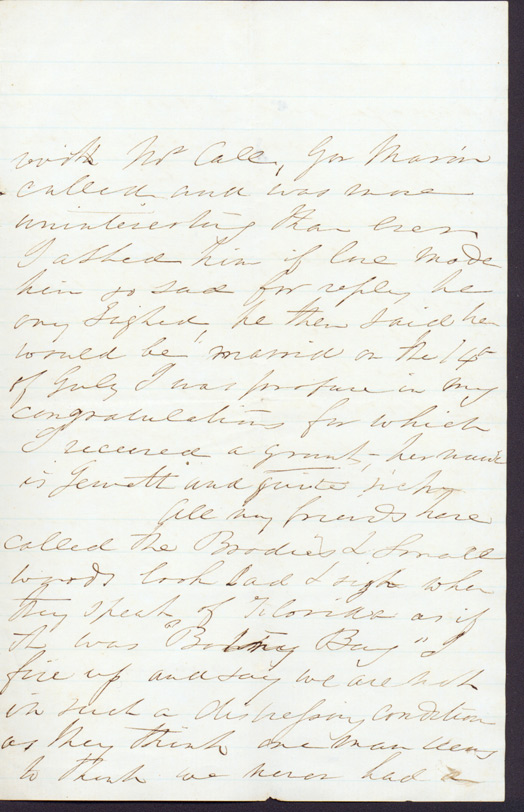 with Mr Call, Gov Marvin
called and was more
uninteresting than ever
I asked him if love made
him so sad for reply he
ony sighed, he then said he
would be marrid on the 14th
of July I was profuse in my
congratulations for which
I received a grunt, her name
is Jewett and quite rich
All my friends here
called the Brodies & Small
woods look sad & sigh when
they speak of Florida as if
it was "Botny Bay" I
fire up and say we are not
in such a distressing condition
as they think one man seems
to think we never had a